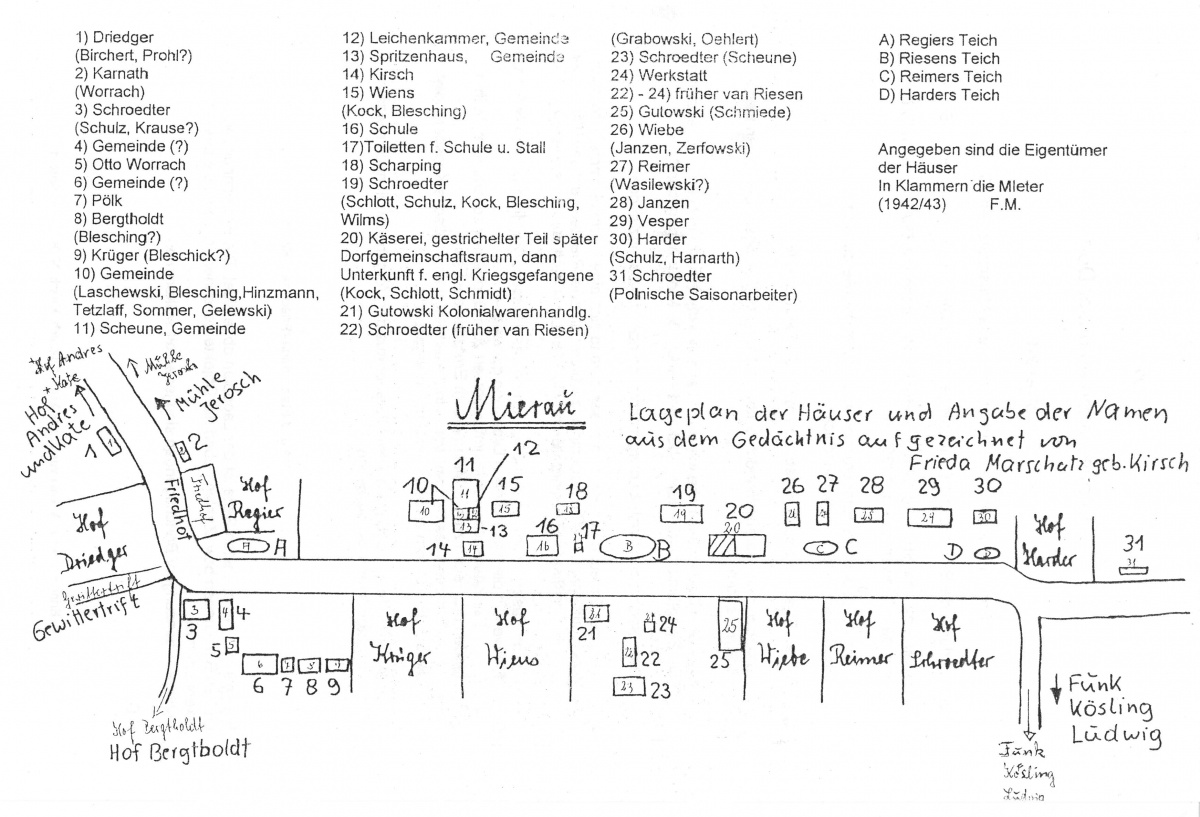 1) Driedger
(Birchert, Prohl?)
2) Karnath
(Worrach)
3) Schroedter
(Schulz, Krause?)
4) Gemeinde (?)
5) Otto Worrach
6) Gemeinde (?)
7) Pölk
8) Bergtholdt
(Blesching?)
9) Krüger (Bleschick?)
10) Gemeinde
(Laschewski, Blesching,Hinzmann,
Tetzlaff, Sommer, Gelewski)
11) Scheune, Gemeinde
12) Leichenkammer, Gemeinde
13) Spritzenhaus, Gemeinde
14) Kirsch
15) Wiens
(Kock, Blesching)
16) Schule
17)Toiletten f. Schule u. Stall
18) Scharping
19) Schroedter
(Schlott, Schulz, Kock, Blesching,
Wilms)
20) Käserei, gestrichelter Teil später
Dorfgemeinschaftsraum, dann
Unterkunft f. engl. Kriegsgefangene
(Kock, Schlott, Schmidt)
21) Gutowski Kolonialwarenhandlg.
22) Schroedter (früher van Riesen)
(Grabowski, Oehlert)
23) Schroedter (Scheune)
24) Werkstatt
22) - 24) früher van Riesen
25) Gutowski (Schmiede)
26) Wiebe
(Janzen, Zerfowski)
27) Reimer
(Wasilewski?)
28) Janzen
29) Vesper
30) Harder
(Schulz, Harnarth)
31 Schroedter
(Polnische Saisonarbeiter)
A) Regiers Teich
B) Riesens Teich
C) Reimers Teich
D) Harders Teich
Angegeben sind die Eigentümer
der Häuser
In Klammern die Mieter
(1942/43) F.M.
Mierau
Lageplan der Häuser und Angabe der Namen
aus dem Gedächtnis aufgezeichnet von
Frieda Marschatz geb. Kirsch
Hof Andres
+ Kate
Mühle
Jerosch
Hof
Andres
und Kate
Mühle
Jerosch
1
2
Friedhof
Friedhof
Hof
Regier
A A
Hof
Driedger
Gewittertrift
Gewittertrift
10 10
11 11
12
13 13
14 14
15 15
16 16
17
18 18
19 19
20 20
B B
26
27
28 28
29 29
30 30
C C
D D
Hof
Harder
31 31
3 3
4 4
5 5
6 6
7 7
8 8
9 9
Hof
Krüger
Hof
Wiens
21 21
22 22
23 23
24
25 25
Hof
Wiebe
Hof
Reimer
Hof
Schroedter
Hof Bergtholdt
Hof Bergtboldt
Funk
Kösling
Ludwig
Funk
Kösling
Ludwig